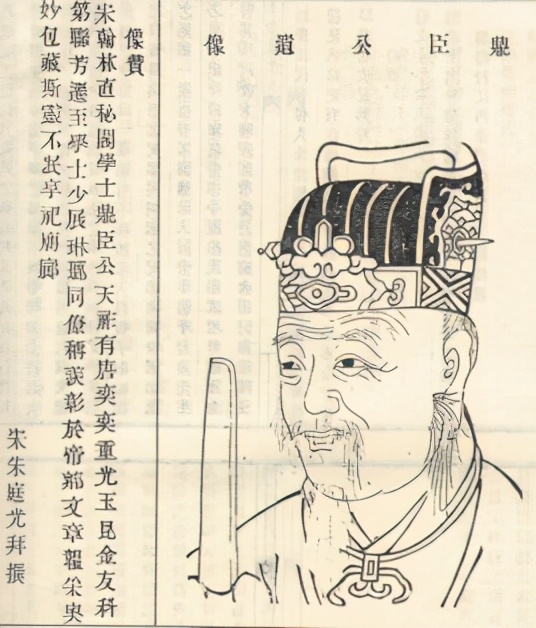 鼎臣公遺像
像贊
宋翰林直秘閣學士鼎臣公 天祚有唐奕奕重光玉昆金友科
第聯芳選至學士少展琳瑯同僚稱羨彰於帝鄉文章韞采奥
妙包藏斯靈不泯享祀廟廊
宋朱庭光拜撰